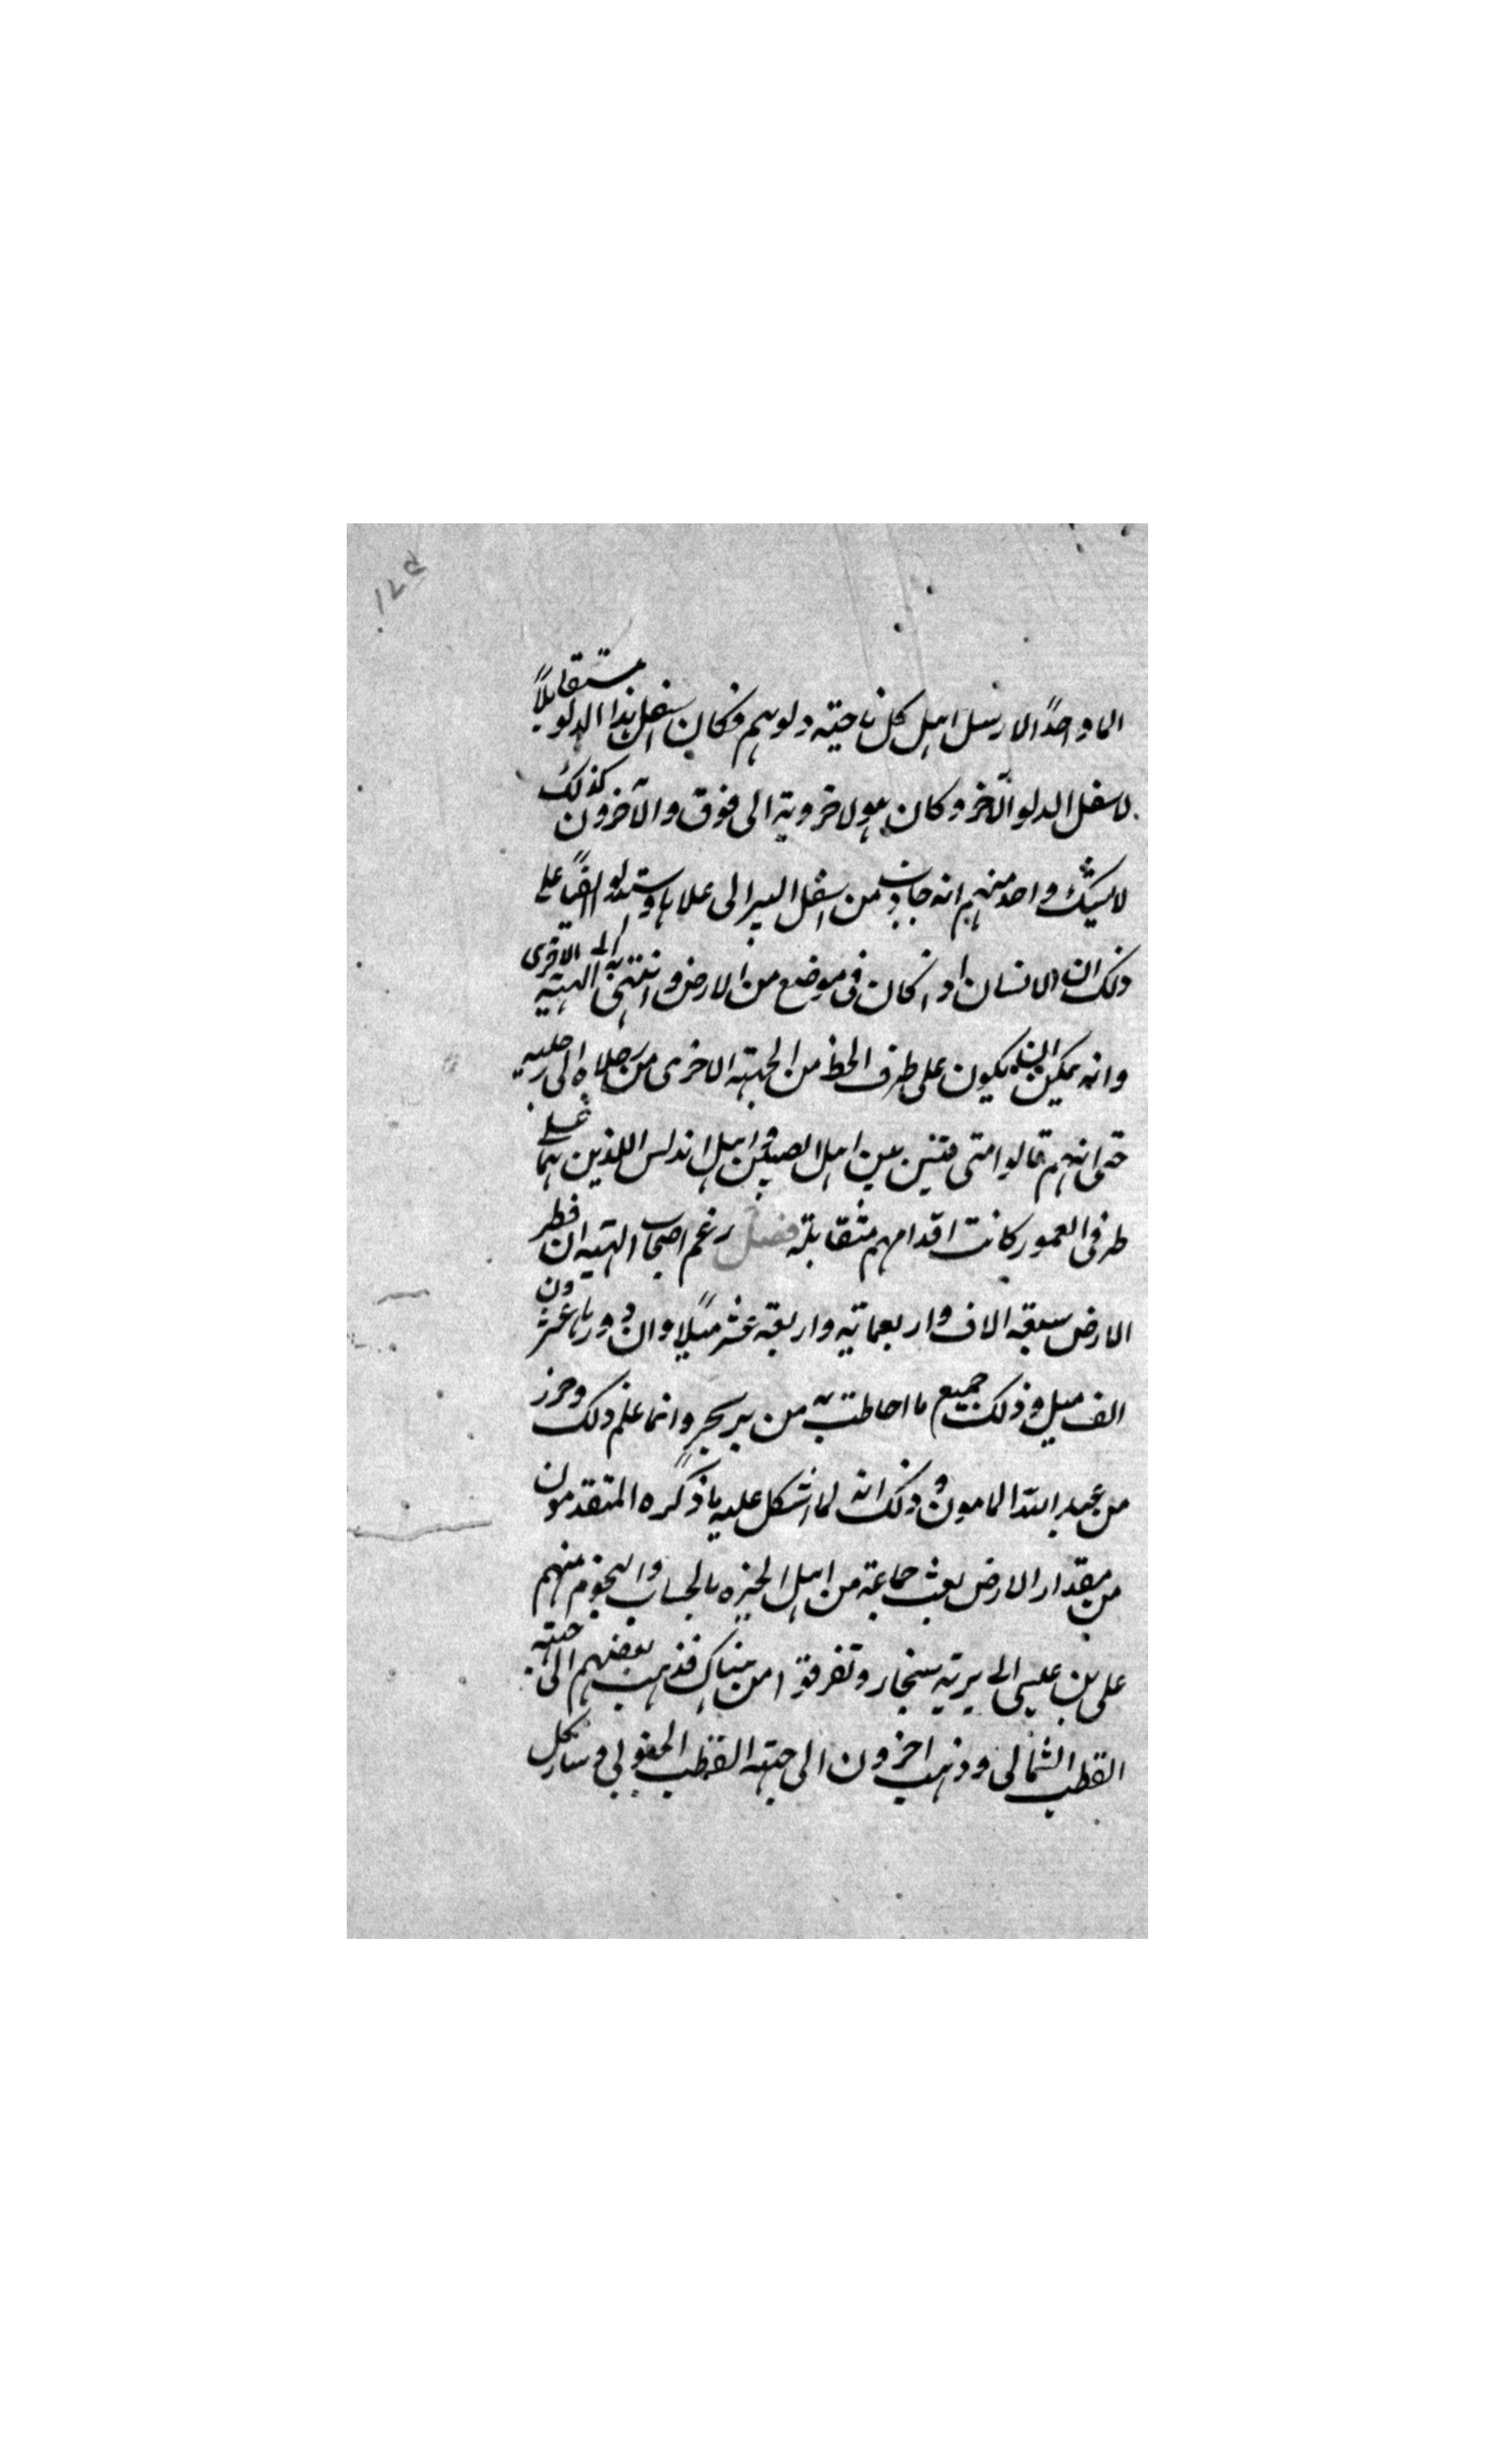 ١٤٥
الما واحدًا لارسل اهل كل ناحيته دلوهم فكان سفل هذا الدلو مستقابلاً
لاسفل الدلو الآخر وكان هولا خروية الى فوق والآخرون كذلك
لا يشك واحد منهم انه جاذب من اسفل البير الى علاها وستدلو ايضًا على
ذلك ان الانسان اذا كان فى موضع من الارض وانتهى به الى الاخرى
وانه يمكن ان يكون على طرف الخط من الجهته الاخرى من رجلاه الى رجليه
حتى انهم قالوا متى قيس بين اهل الصين وبين اهل اندلس اللذين هما على
طرفى العمور كانت اقدامهم متقابلة فصل زعم اصحاب الهيه ان قطر
الارض سبعة الاف واربعمائيه واربعة عشر ميلًا وان دورها عشرون
الف ميل وذلك جميع ما احاطت به من بر بحر وانما علم ذلك وحرز
من عبد الله المامون وذلك انه لما اشكل عليه ما ذكره المتقدمون
من مقدار الارض بعث جماعة من اهل الخبره بالحساب والنجوم منهم
على بن عيسى الى بريه سنجار وتفرقوا من هناك فذهب بعضهم الى جهته
القطب الشمالى وذهب اخرون الى جهته القطب الجنوبى وسار كل